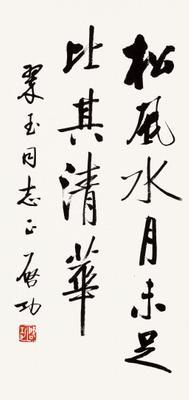 松風水月未足
比其清華
翠玉同志正 啟功